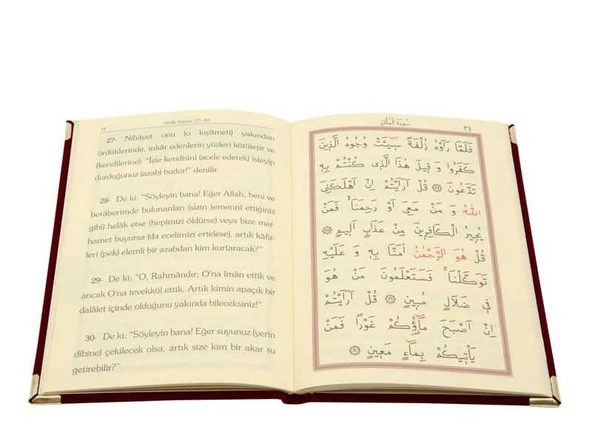 34
Mülk Sûresi (27-30)
27- Nihâyet onu (o kıyâmeti) yakından
gördüklerinde, inkâr edenlerin yüzleri kötüleşir ve
(kendilerine): "İşte kendisini (acele ederek) isteyip
durduğunuz (azab) budur!" denilir.
28- De ki: "Söyleyin bana! Eğer Allah, beni ve
berâberimde bulunanları (sizin temennî ettiğiniz
gibi) helâk etse (hepimizi öldürse) veya bize mer-
hamet buyursa (da ecelimizi ertelese), artık kâfir-
leri (pek) elemli bir azabdan kim kurtaracak?"
29- De ki: "O, Rahmândır; O'na îmân ettik ve
ancak O'na tevekkül ettik. Artık kimin apaçık bir
dalâlet içinde olduğunu yakında bileceksiniz!"
30- De ki: "Söyleyin bana! Eğer suyunuz (yerin
dibine) çekilecek olsa, artık size kim bir akar su
getirebilir?"
سورة الملك
٣٤
فَلَمَّا رَاَوْهُ زُلْفَةً سٖٓيـَٔتْ وُجُوهُ الَّذٖينَ
كَفَرُوا وَ قٖيلَ هٰذَا الَّذٖى كُنْتُمْ بِهٖ
تَدَّعُونَ ﴿٢٧﴾ قُلْ اَرَاَيْتُمْ اِنْ اَهْلَكَنِىَ
اللّٰهُ وَ مَنْ مَعِىَ اَوْ رَحِمَنَا فَمَنْ
يُجٖيرُ الْكَافِرٖينَ مِنْ عَذَابٍ اَلٖيمٍ ﴿٢٨﴾
قُلْ هُوَ الرَّحْمٰنُ اٰمَنَّا بِهٖ وَ عَلَيْهِ
تَوَكَّلْنَا فَسَتَعْلَمُونَ مَنْ هُوَ
فٖى ضَلَالٍ مُبٖينٍ ﴿٢٩﴾ قُلْ اَرَاَيْتُمْ
اِنْ اَصْبَحَ مَٓاؤُكُمْ غَوْرًا فَمَنْ
يَاْتٖيكُمْ بِمَٓاءٍ مَعٖينٍ ﴿٣٠﴾